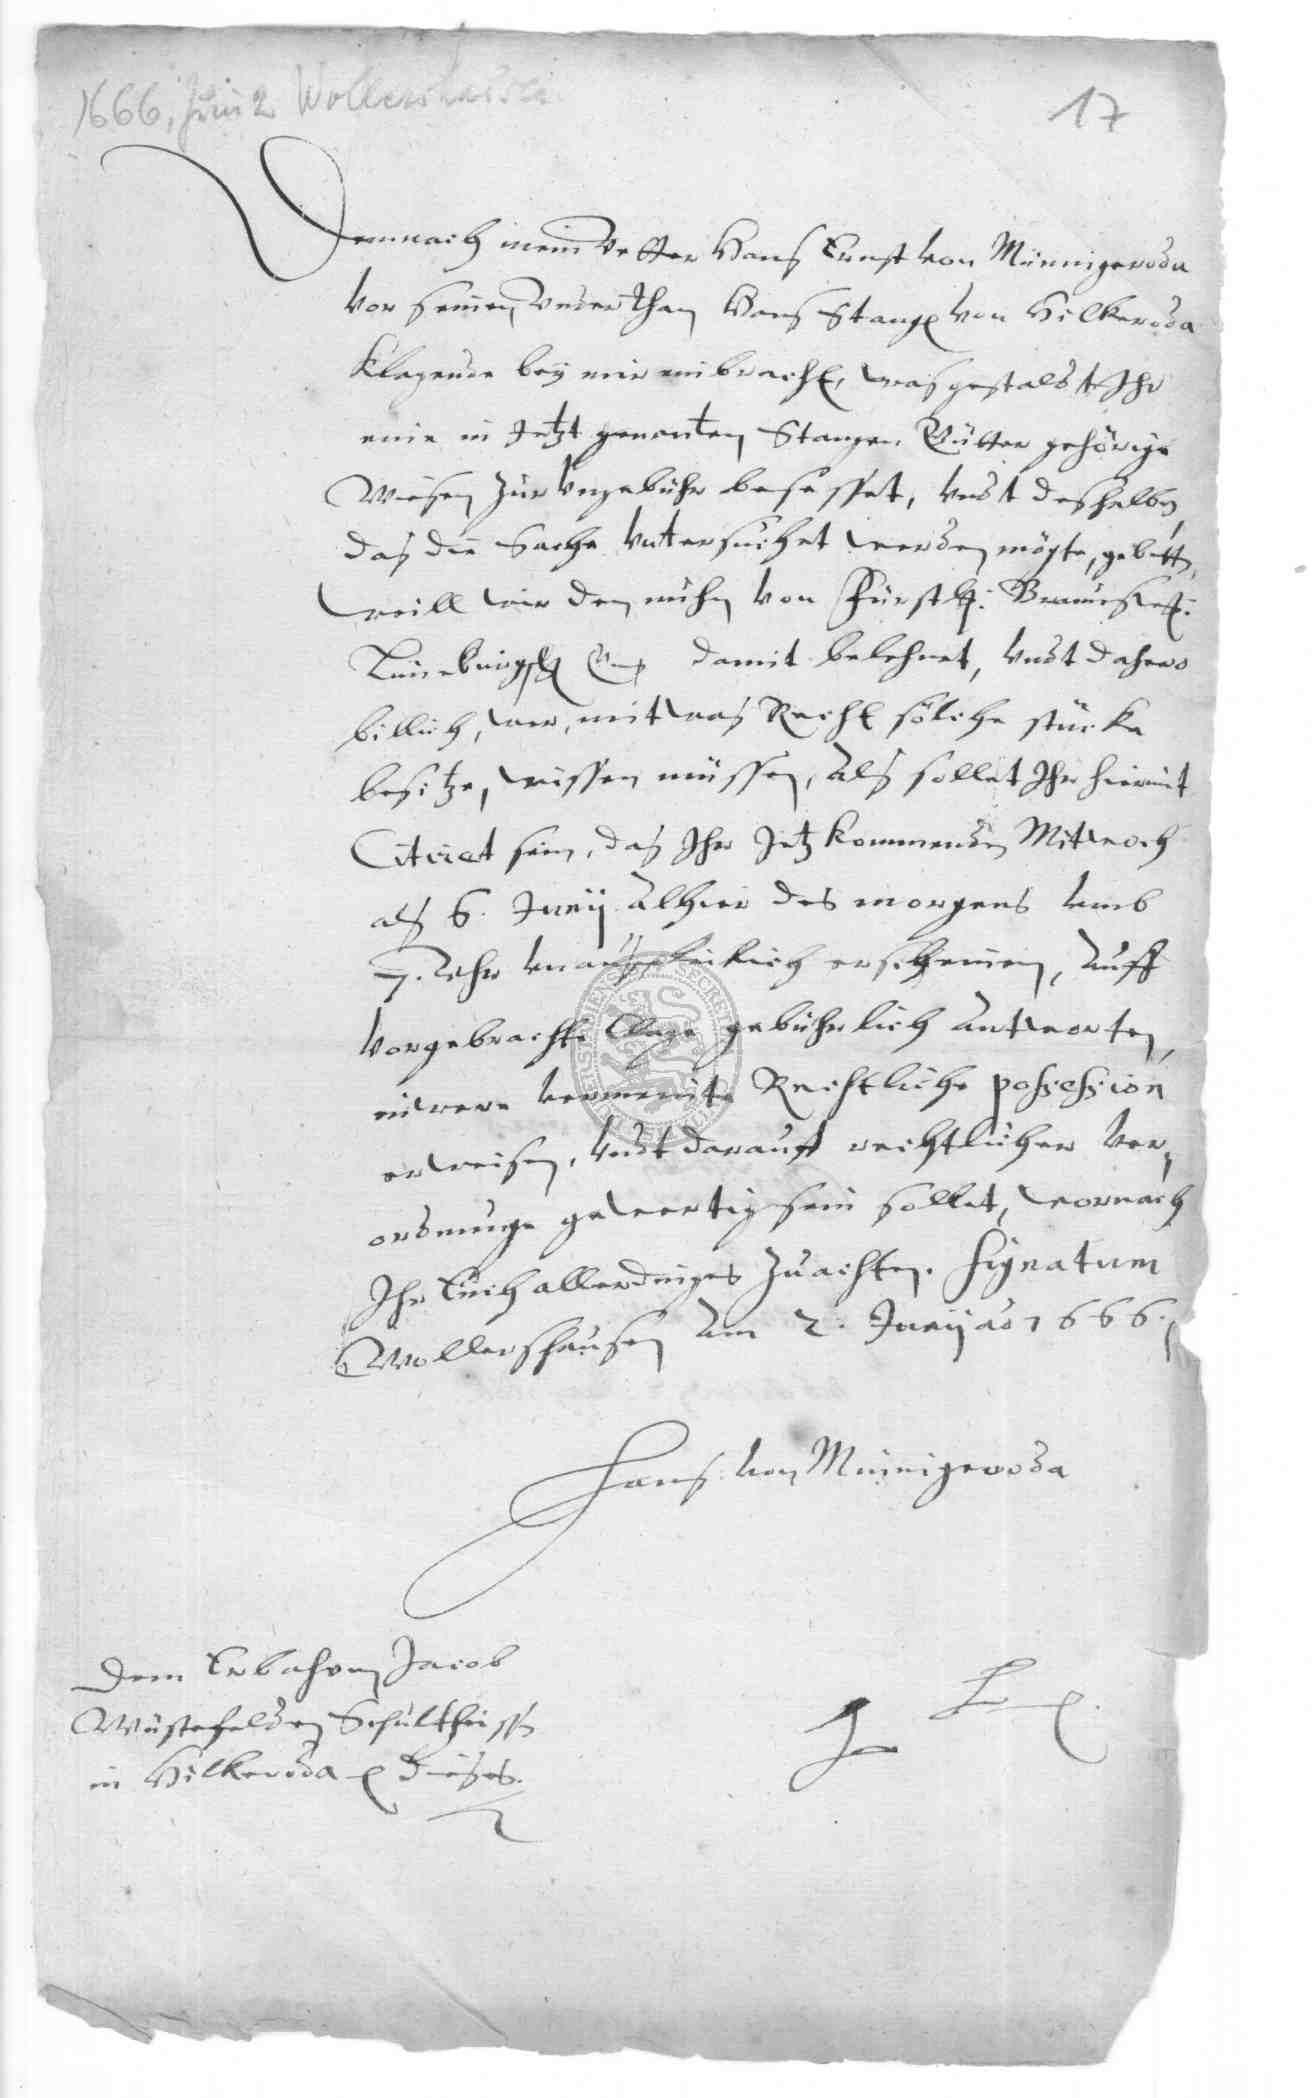 1666, Juni 2 Wollershausen
17
Demnach mein Vetter Hans Ernst von Münnigeroda
vor seinen Underthan Hans Stange von Hilkeroda
Klagende bey mir einbracht, was gestaldt Ihr
eine in Jetzt genanten Stangen Gütter gehörige
Wiesen zur Ungebühr besesset, undt deshalben
das die Sache untersuchet werden mögte, gebetten,
weill wir den nuhn von Fürstl: Braunschw:
Lüneburgsch damit belehnet, undt dahero
billich, wer, mit was Recht solche stücke
besitze, wissen müssen, Als sollet Ihr hiermit
Citiret sein, das Ihr Jetz kommenden Mitwoch
als 6. Junij Alhier des morgens umb
7. Uhr unausbleiblich erscheinen, Auff
vorgebrachte Clage gebührlich Antworten,
eiwere vermeinte Rechtliche possession
erweisen, undt darauff rechtlicher Ver-
ordnunge gewertig sein sollet, wornach
Ihr Euch allerdinges zu achten. Signatum
Wollershausen Am 2. Junij ao 1666.
Hans von Münnigeroda
Dem Erbahren Jacob
Wüstefelden Schultheissen
in Hilkeroda dieses.